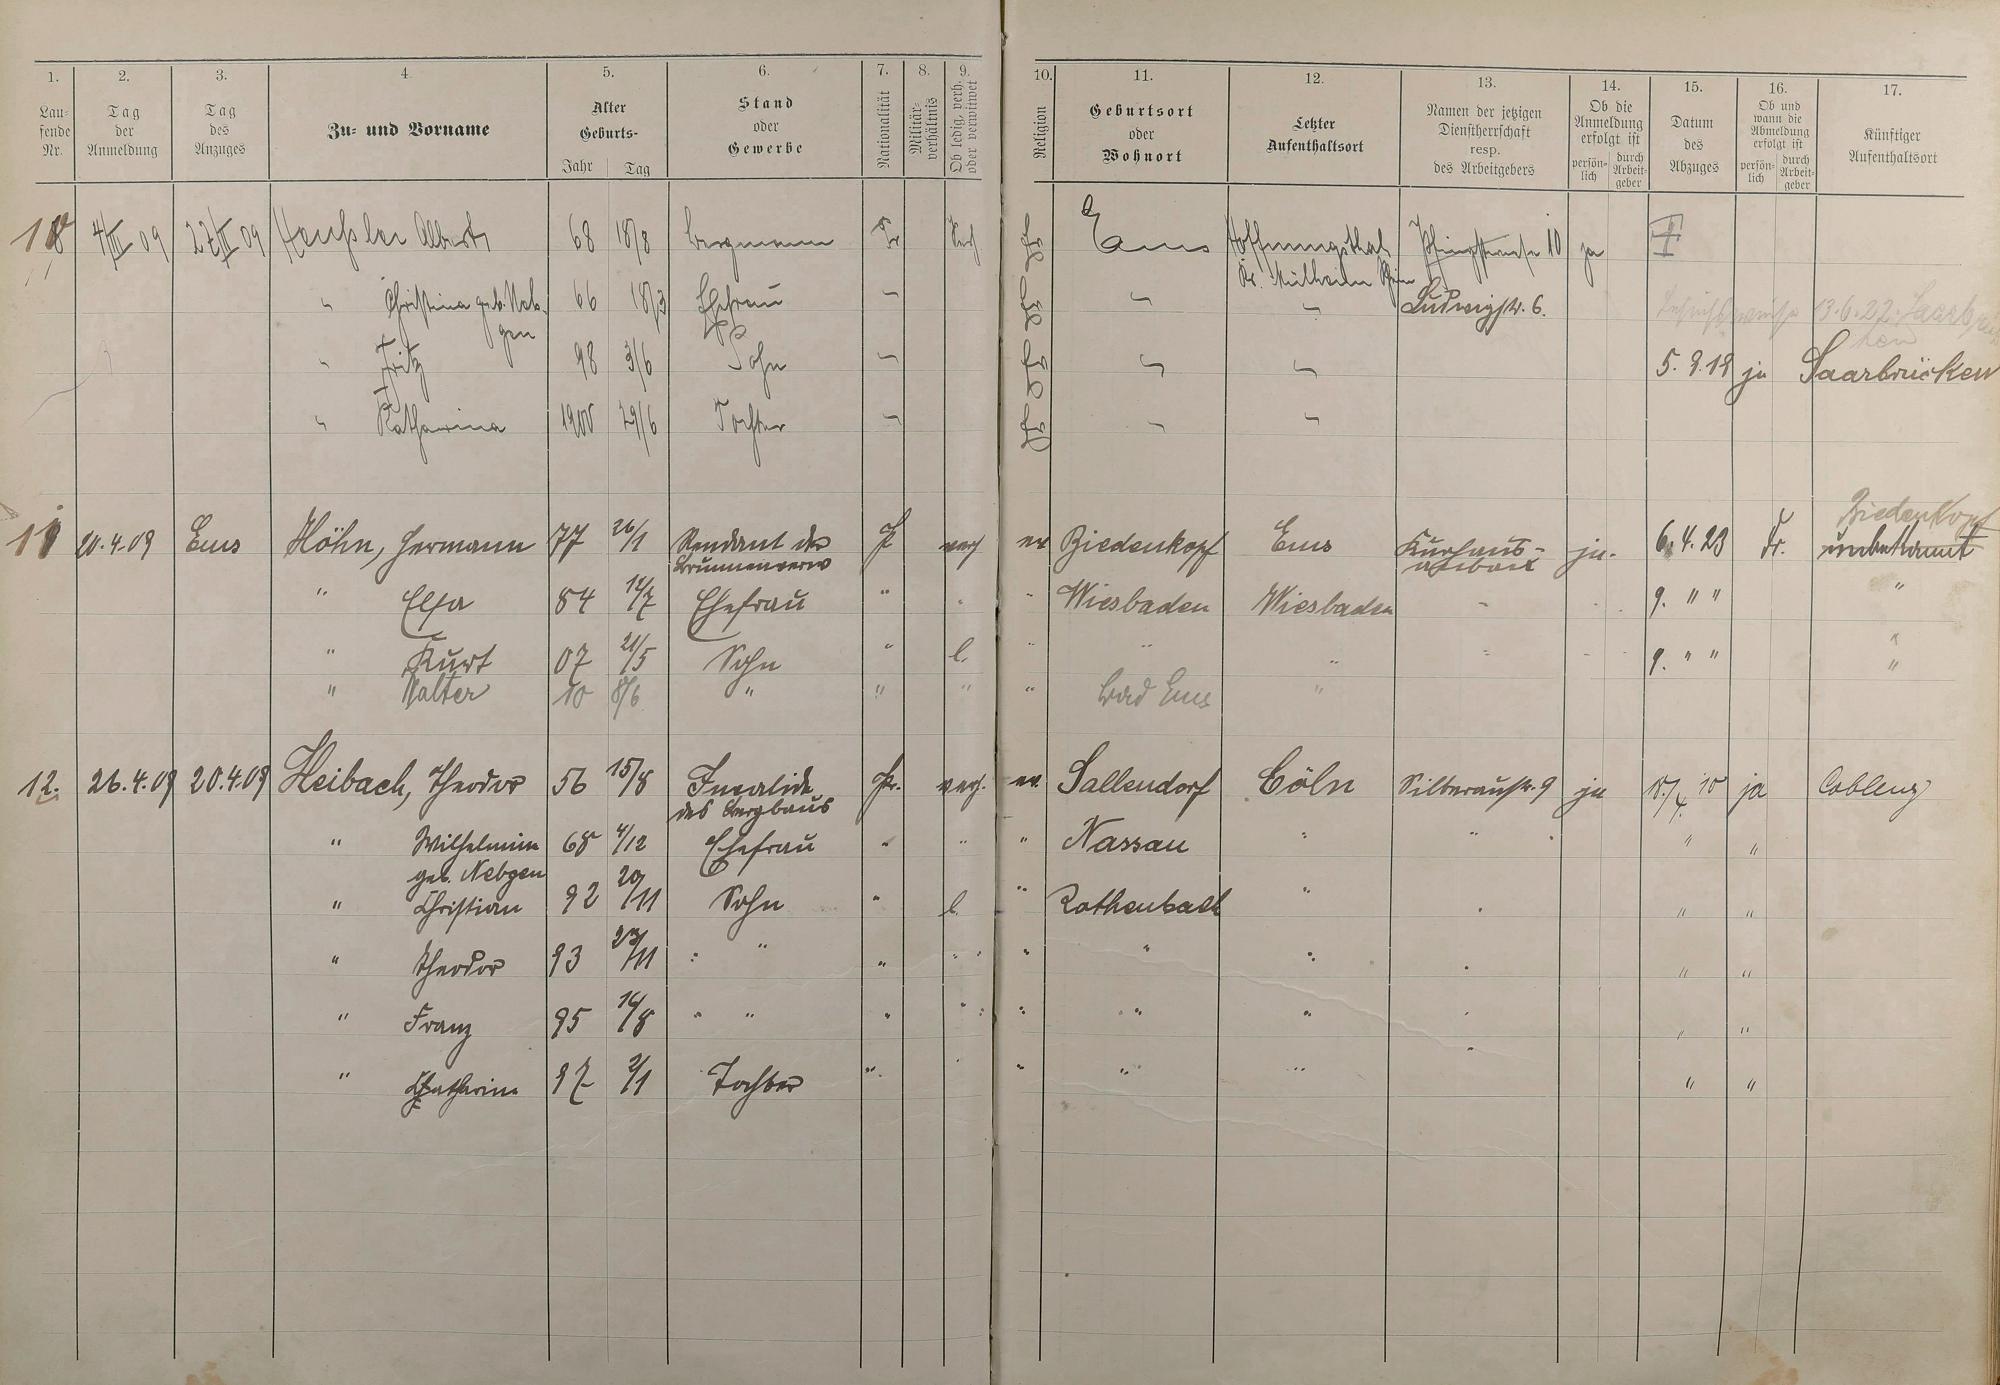 1. 2. 3. 4. 5. 6. 7. 8. 9. 10. 11. 12. 13. 14. 15. 16. 17.
Laufende Nr. Tag der Anmeldung Tag des Anzuges Zu- und Vorname Alter Geburts- Jahr Tag Stand oder Gewerbe Nationalität Militärverhältnis Ob ledig, verh. oder verwitwet Religion Geburtsort oder Wohnort Letzter Aufenthaltsort Namen der jetzigen Dienstherrschaft resp. des Arbeitgebers Ob die Anmeldung erfolgt ist persönlich durch Arbeitgeber Datum des Abzuges Ob und wann die Abmeldung erfolgt ist persönlich durch Arbeitgeber Künftiger Aufenthaltsort
4/III 09 27/III 09 Albert 68 18/8 Bergmann Pr Verh. Ems Hoffnungsthal 10 ja
Kr. Mülheim Rhein
" Christina geb. Neb- 66 18/3 Ehefrau " " " Ludwigstr. 6. 13.6.22. Saarbrücken
gen
" Fritz 98 3/6 Sohn " " " 5.9.19 ja Saarbrücken
" Katharina 1900 29/6 Tochter " " "
Biedenkopf
11 20.4.09 Ems Höhn, Hermann 77 26/1 Rendant der P verh ev Biedenkopf Ems Kurhaus- ja. 6.4.23 Fr. unbekannt
Brunnenverw
" Elsa 84 12/7 Ehefrau " " " Wiesbaden Wiesbaden " " 9. " " "
" Kurt 07 21/5 Sohn " l. " " " " " 9. " " "
" Walter 10 8/6 " " " " Bad Ems "
12. 26.4.09 20.4.09 Heibach, Theodor 56 15/8 Invalide Pr. verh. ev. Sallendorf Cöln Silberaustr. 9 ja 15/4. 10 ja Coblenz
des Bergbaus
" Wilhelmine 68 4/12 Ehefrau " " " Nassau " " " "
geb. Nebgen
" Christian 92 20/11 Sohn " l. " Rothenbach " " " "
" Theodor 93 23/11 " " " " " " " " " "
" Franz 95 14/8 " " " " " " " " " "
" Catharine 97 2/1 Tochter " " " " " " " "